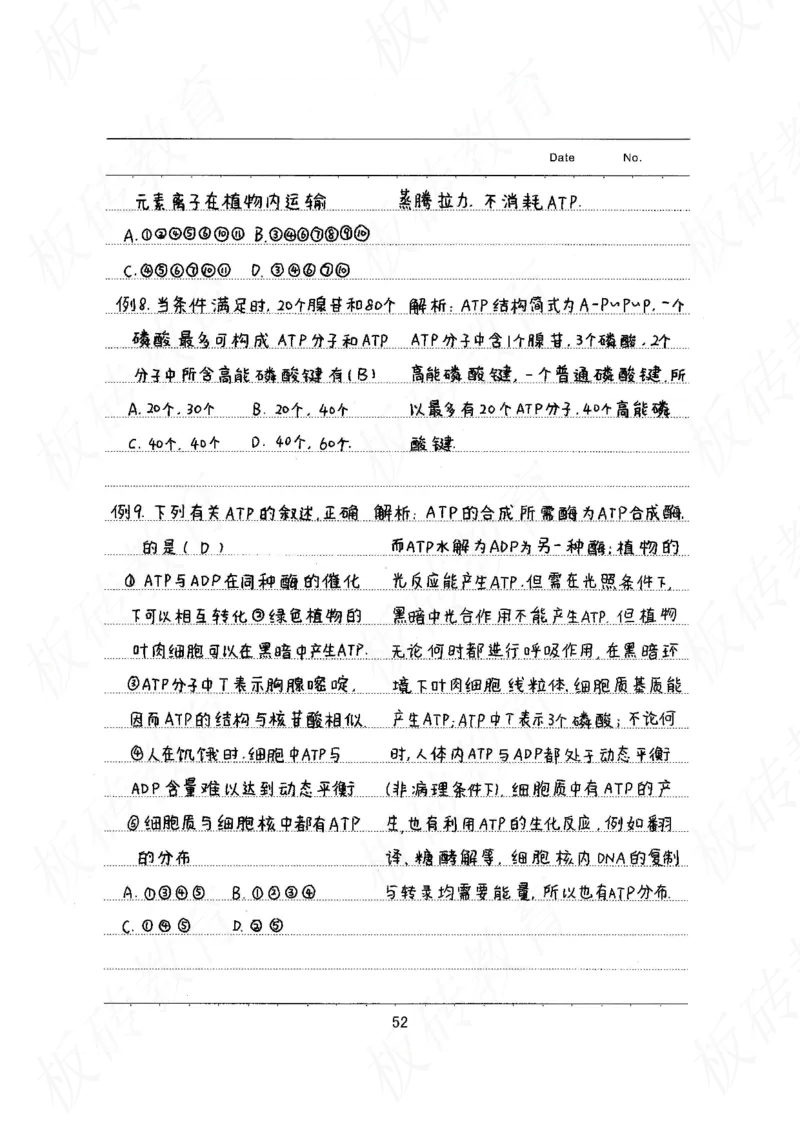 Date No.
元素离子在植物内运输
A.①②④⑤⑥⑩⑪ B.③④⑥⑦⑧⑨⑩
C.④⑤⑥⑦⑩⑪ D.③④⑥⑦⑩
蒸腾拉力.不消耗ATP.
例8.当条件满足时,20个腺苷和80个
磷酸最多可构成ATP分子和ATP
分子中所含高能磷酸键有(B)
A.20个.30个 B.20个,40个
C.40个,40个 D.40个,60个.
解析:ATP结构简式为A-P~P~P,一个
ATP分子中含1个腺苷,3个磷酸,2个
高能磷酸键,一个普通磷酸键.所
以最多有20个ATP分子.40个高能磷
酸键.
例9.下列有关ATP的叙述,正确
的是(D)
①ATP与ADP在同种酶的催化
下可以相互转化②绿色植物的
叶肉细胞可以在黑暗中产生ATP.
③ATP分子中T表示胸腺嘧啶,
因而ATP的结构与核苷酸相似.
④人在饥饿时.细胞中ATP与
ADP含量难以达到动态平衡
⑤细胞质与细胞核中都有ATP
的分布
A.①③④⑤ B.①②③④
C.①④⑤ D.②⑤
解析:ATP的合成所需酶为ATP合成酶.
而ATP水解为ADP为另一种酶;植物的
光反应能产生ATP.但需在光照条件下,
黑暗中光合作用不能产生ATP.但植物
无论何时都进行呼吸作用,在黑暗环
境下叶肉细胞线粒体.细胞质基质能
产生ATP;ATP中T表示3个磷酸;不论何
时,人体内ATP与ADP都处于动态平衡
(非病理条件下).细胞质中有ATP的产
生,也有利用ATP的生化反应,例如翻
译、糖酵解等,细胞核内DNA的复制
与转录均需要能量,所以也有ATP分布.
52
板砖教育